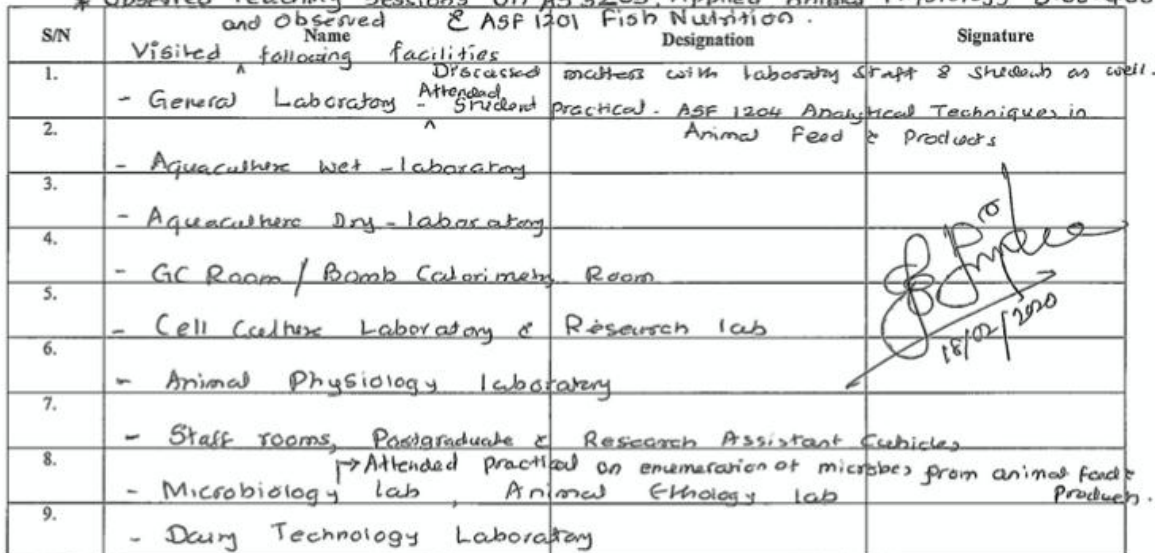 * Observed Teaching Sessions on AS 3203, Applied Animal Physiology
and observed & ASF 1201 Fish Nutrition.
S/N Name Designation Signature
Visited following facilities
1. Discussed matters with laboratory staff & students as well.
- General Laboratory - Attended Student practical - ASF 1204 Analytical Techniques in
2. Animal Feed & Products
- Aquaculture wet-laboratory
3.
- Aquaculture Dry-laboratory
4.
- GC Room / Bomb Calorimetry Room
5.
- Cell Culture Laboratory & Research lab
18/02/2020
6.
- Animal Physiology laboratory
7.
- Staff rooms, Postgraduate & Research Assistant Cubicles
8. Attended practical on enumeration of microbes from animal feed &
- Microbiology lab, Animal Ethology lab Products.
9.
- Dairy Technology Laboratory